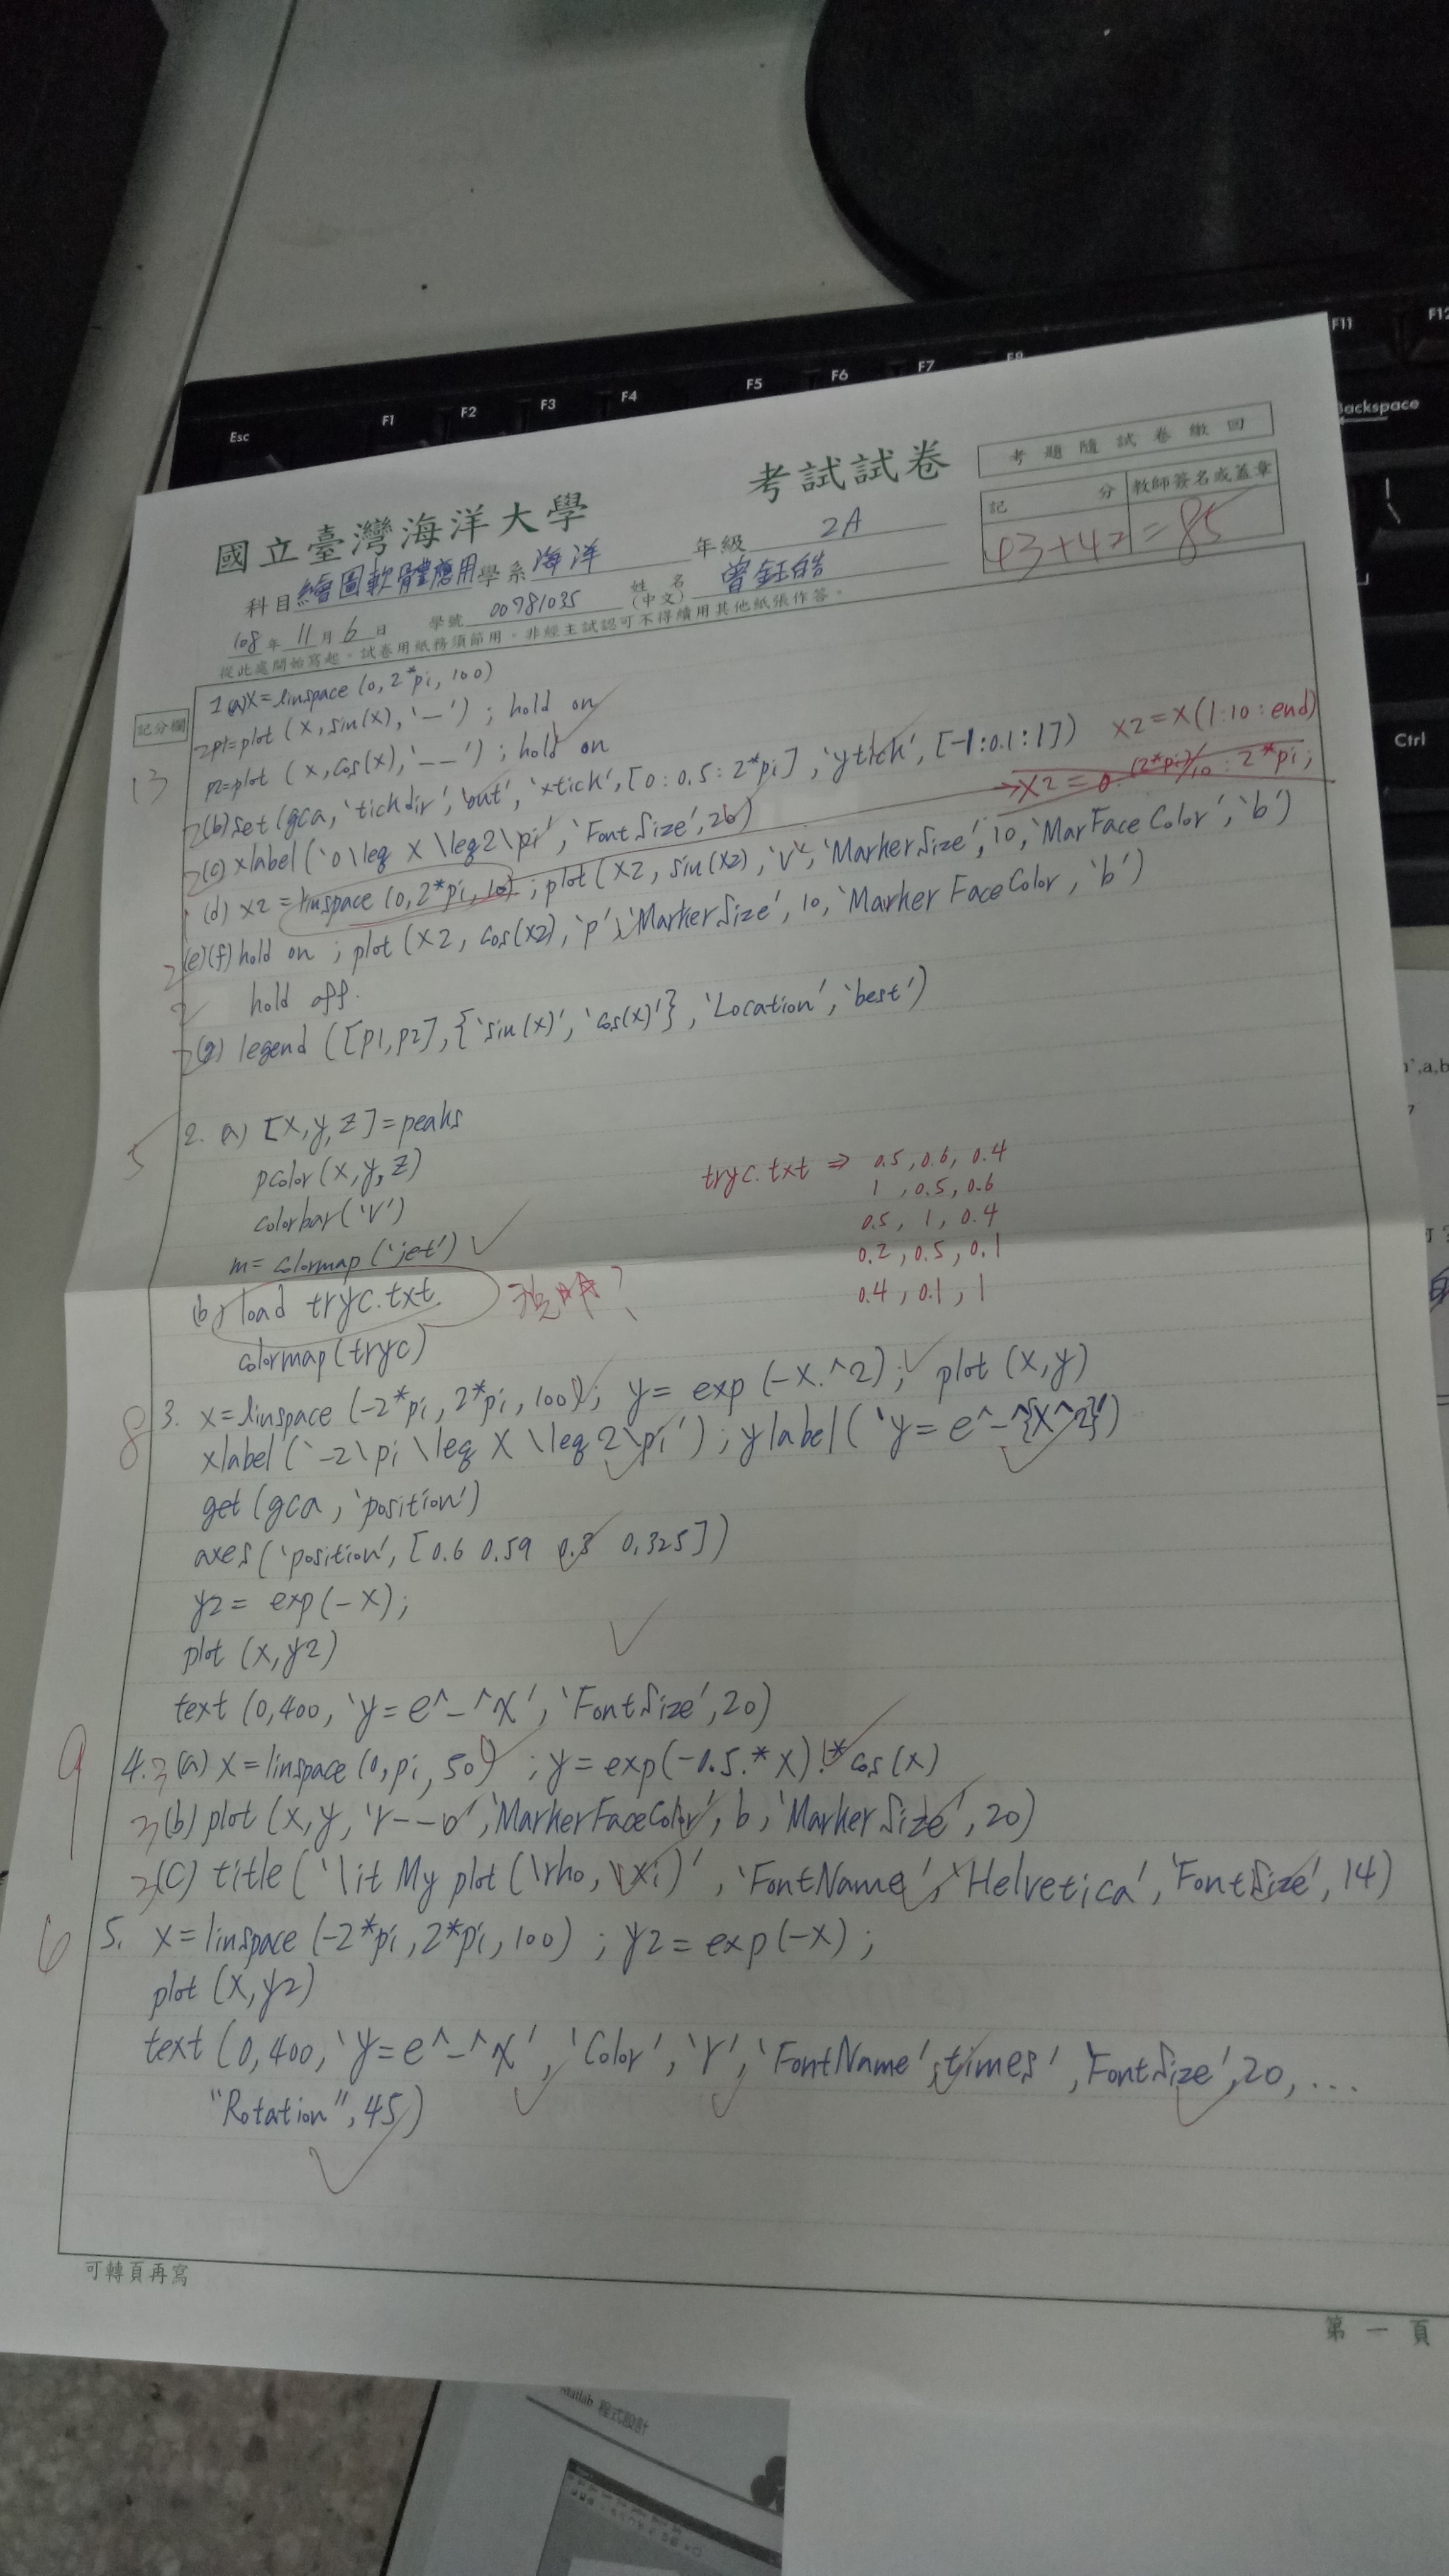 Esc F1 F2 F3 F4 F5 F6 F7 F8 F11 F12
Backspace
Ctrl
國立臺灣海洋大學 考試試卷
考題隨試卷繳回
記分 教師簽名或蓋章
43+42=85
科目 繪圖軟體應用 學系 海洋 年級 2A
108年 11月 6日 學號 00781035 姓名(中文) 曾鈺皓
從此處開始寫起。試卷用紙務須節用。非經主試認可不得續用其他紙張作答。
記分欄
13
1(a)X=linspace(0,2*pi,100)
2 p1=plot(x,sin(x),'—'); hold on
p2=plot(x,cos(x),'--'); hold on
2(b)set(gca,'tickdir','out','xtick',[0:0.5:2*pi],'ytick',[-1:0.1:1]) x2=x(1:10:end)
→x2=0:(2*pi)/10:2*pi;
2(c)xlabel('0\leq X\leq2\pi','FontSize',26)
1(d) x2=linspace(0,2*pi,10);plot(x2,sin(x2),'v','MarkerSize',10,'MarFaceColor','b')
2(e)(f)hold on; plot(x2,cos(x2),'p','MarkerSize',10,'MarkerFaceColor,'b')
2 hold off.
2(g) legend([p1,p2],{'sin(x)','cos(x)'},'Location','best')
5
2. a) [x,y,z]=peaks
pcolor(x,y,z)
colorbar('v')
m=colormap('jet')
(b) load tryc.txt 說明?
colormap(tryc)
tryc.txt ⇒ 0.5,0.6,0.4
1,0.5,0.6
0.5,1,0.4
0.2,0.5,0.1
0.4,0.1,1
8
3. x=linspace(-2*pi,2*pi,100); y=exp(-x.^2); plot(x,y)
xlabel('-2\pi\leq X\leq2\pi'); ylabel('y=e^-^{x^2}')
get(gca,'position')
axes('position',[0.6 0.59 0.3 0.325])
y2=exp(-x);
plot(x,y2)
text(0,400,'y=e^-^x','FontSize',20)
9
4.3(a) x=linspace(0,pi,50); y=exp(-0.5.*x).*cos(x)
3(b) plot(x,y,'r--o','MarkerFaceColor',b,'MarkerSize',20)
3(c) title('\it My plot(\rho,\xi)','FontName','Helvetica','FontSize',14)
6
5. x=linspace(-2*pi,2*pi,100); y2=exp(-x);
plot(x,y2)
text(0,400,'y=e^-^x','Color','r','FontName','times','FontSize',20,...
"Rotation",45)
可轉頁再寫
第一頁
Matlab 程式設計